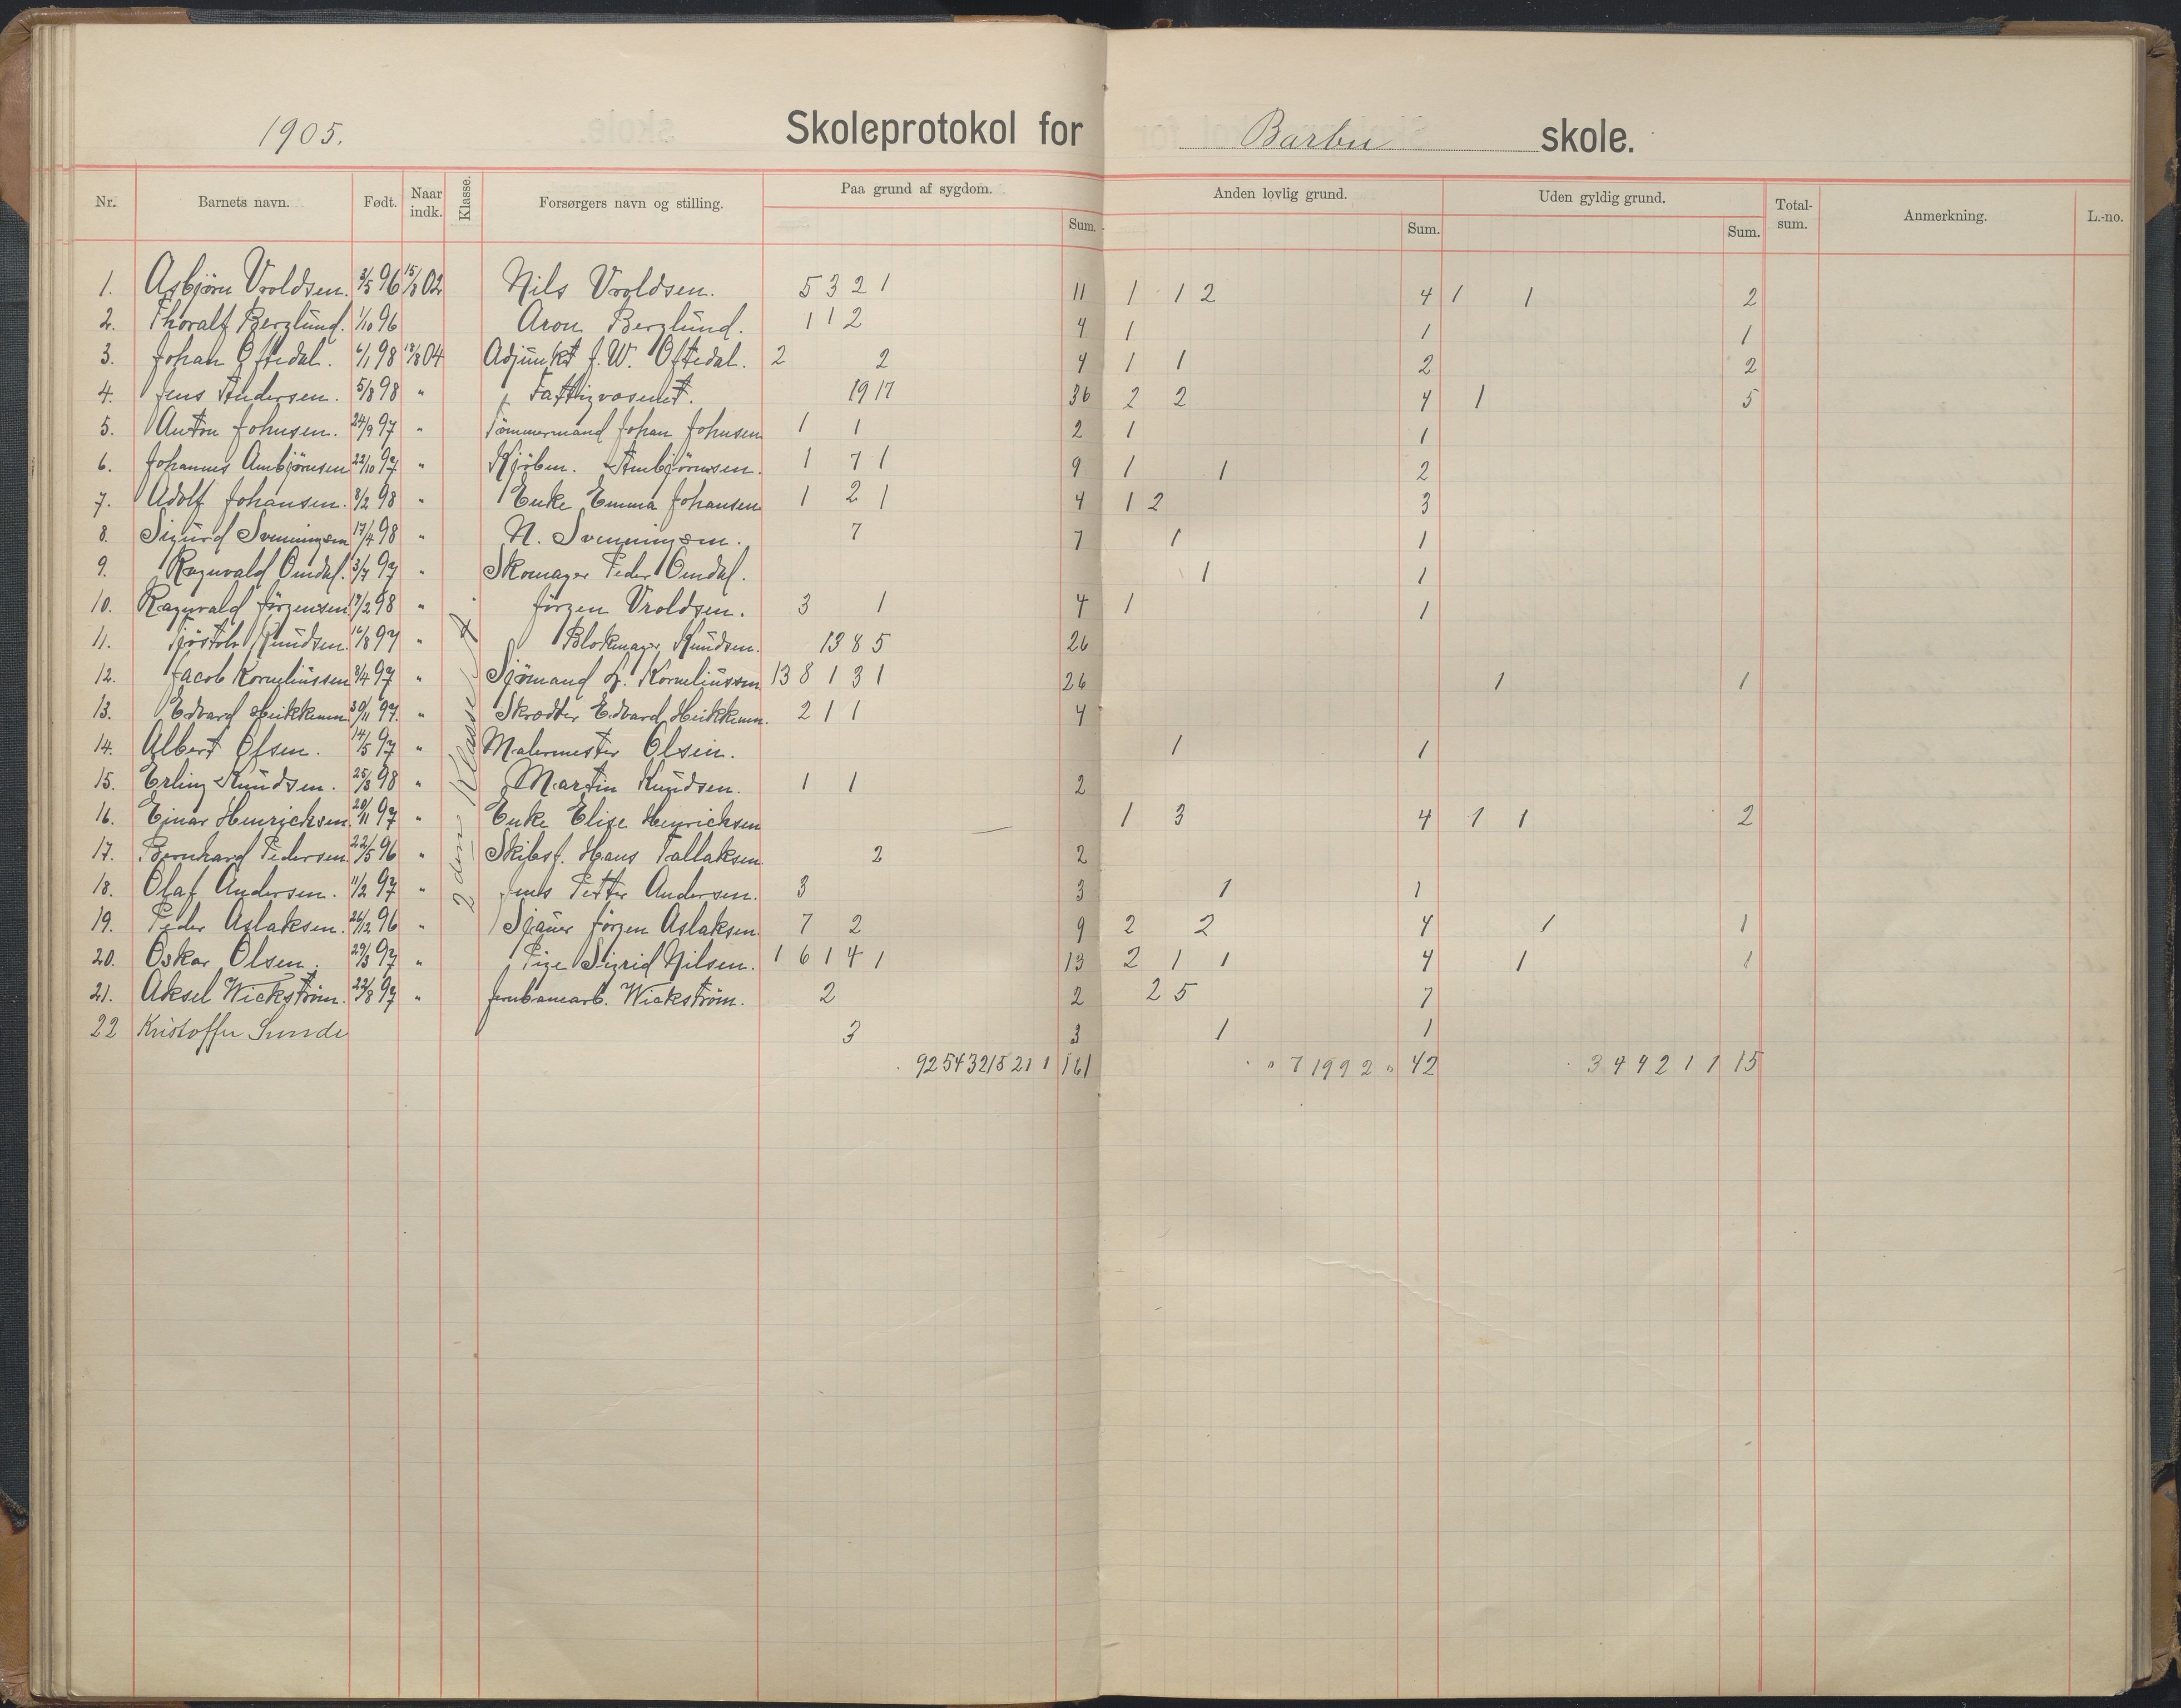 1905. Skoleprotokol for Barbu skole.
Nr. Barnets navn. Født. Naar indk. Klasse. Forsørgers navn og stilling. Paa grund af sygdom. Sum. Anden lovlig grund. Sum. Uden gyldig grund. Sum. Total-sum. Anmerkning. L.-no.
2den Klasse A.
1. Asbjörn Vroldsen. 3/5 96 15/8 02 Nils Vroldsen. 5 3 2 1 11 1 1 2 4 1 1 2
2. Thoralf Berglund. 1/10 96 Aron Berglund. 1 1 2 4 1 1 1
3. Johan Oftedal. 6/1 98 18/8 04 Adjunkt J. W. Oftedal. 2 2 4 1 1 2 2
4. Jens Andersen. 5/8 98 " Fattigvæsenet. 19 17 36 2 2 4 1 5
5. Anton Johnsen. 24/9 97 " Tömmermand Johan Johnsen 1 1 2 1 1
6. Johannes Ambjörnsen 22/10 97 " Kjöbm. Ambjörnsen. 1 7 1 9 1 1 2
7. Adolf Johansen. 8/2 98 " Enke Emma Johansen 1 2 1 4 1 2 3
8. Sigurd Svenningsen 17/4 98 " N. Svenningsen. 7 7 1 1
9. Ragnvald Omdal. 3/7 97 " Skomager Peder Omdal. 1 1
10. Ragnvald Jörgensen 17/2 98 " Jörgen Vroldsen. 3 1 4 1 1
11. Knudsen. 16/8 97 " Blokmager Knudsen. 13 8 5 26
12. Jacob Korneliussen 3/4 97 " Sjömand Korneliussen 13 8 1 3 1 26 1 1
13. Edvard Heikkinen 30/11 97. " Skrædder Edvard Heikkinen. 2 1 1 4
14. Albert Olsen. 14/5 97 " Malermester Olsen. 1 1
15. Erling Knudsen. 25/3 98 " Martin Knudsen. 1 1 2
16. Einar Henrichsen. 20/11 97 " Enke Elise Henrichsen 1 3 4 1 1 2
17. Bernhard Pedersen. 22/5 96 " Skibsf. Hans Tallaksen. 2 2
18. Olaf Andersen. 11/2 97 " Jens Petter Andersen. 3 3 1 1
19. Peder Aslaksen. 26/12 96 " Sjauer Jörgen Aslaksen. 7 2 9 2 2 4 1 1
20. Oskar Olsen. 29/3 97 " Pige Sigrid Nilsen. 1 6 1 4 1 13 2 1 1 4 1 1
21. Aksel Wickström. 22/8 97 " Jernbanearb. Wickström. 2 2 2 5 7
22 Kristoffer Sunde 3 3 1 1
9 25 43 21 52 1 1 161 " 7 19 9 2 " 42 3 4 4 2 1 1 15